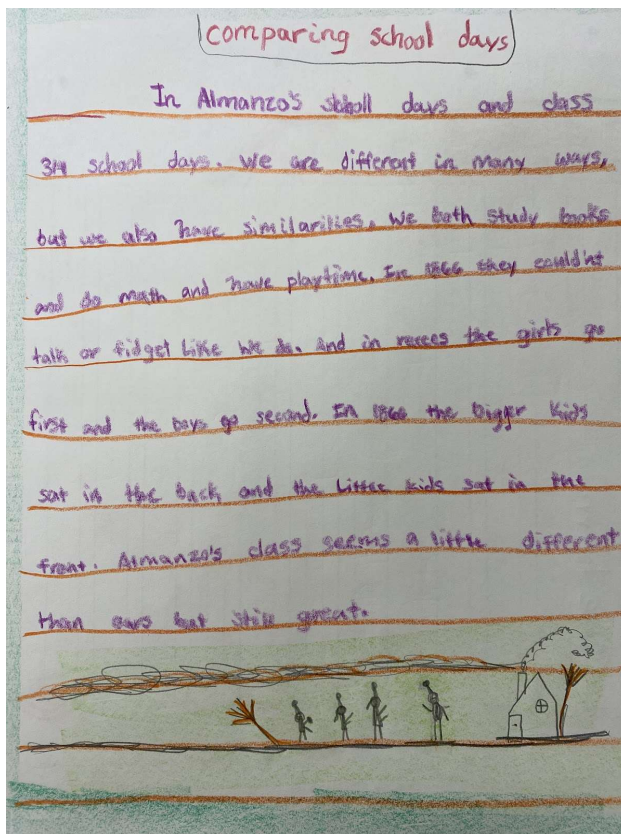 comparing school days
In Almanzo's scholl days and class
3/4 school days. We are different in many ways,
but we also have similarities. We both study books
and do math and have playtime. In 1866 they could'nt
talk or fidget Like We do. And in recees the girls go
first and the boys go second. In 1866 the bigger kids
sat in the back and the Little kids sat in the
front. Almanzo's class seems a little different
than ours but still great.